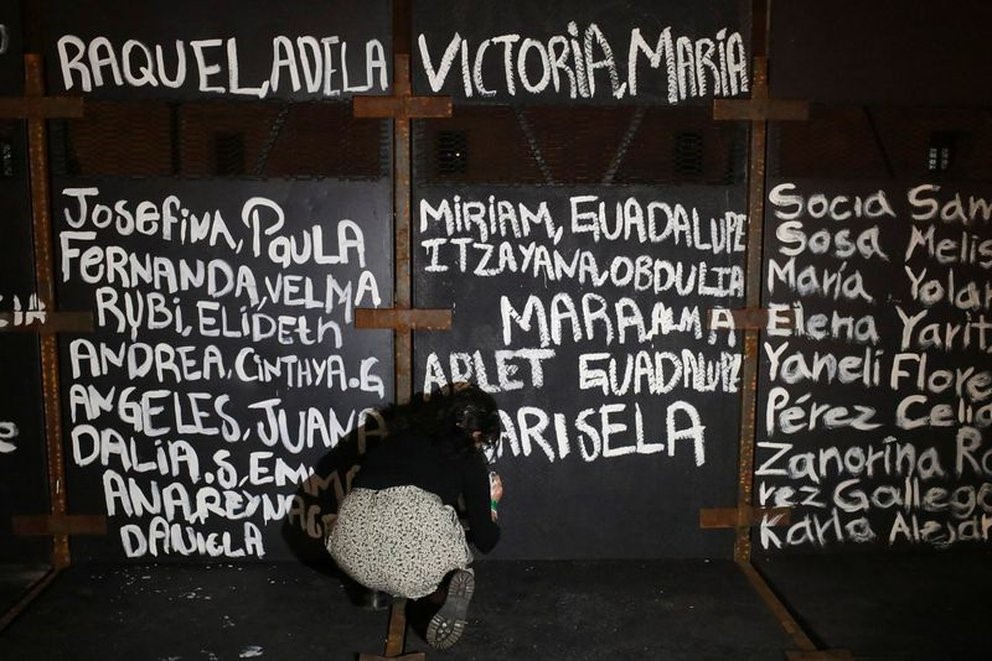 RAQUEL, ADELA
JOSEFINA, PAULA
FERNANDA, VELMA
RUBI, ELIDETH
ANDREA, CINTHYA.G
ANGELES, JUANA
DALIA.S, EMM
ANA, REYN
DANIELA
VICTORIA, MARÍA
MIRIAM, GUADALUPE
ITZAYANA, OBDULIA
MARA, ALMA
ARLET GUADALUPE
ARISELA
Socia Sam
Sosa Melis
María Yolan
Elena Yaritz
Yaneli Flore
Pérez Celia
Zanorina Ro
rez Gallego
Karla Alejan